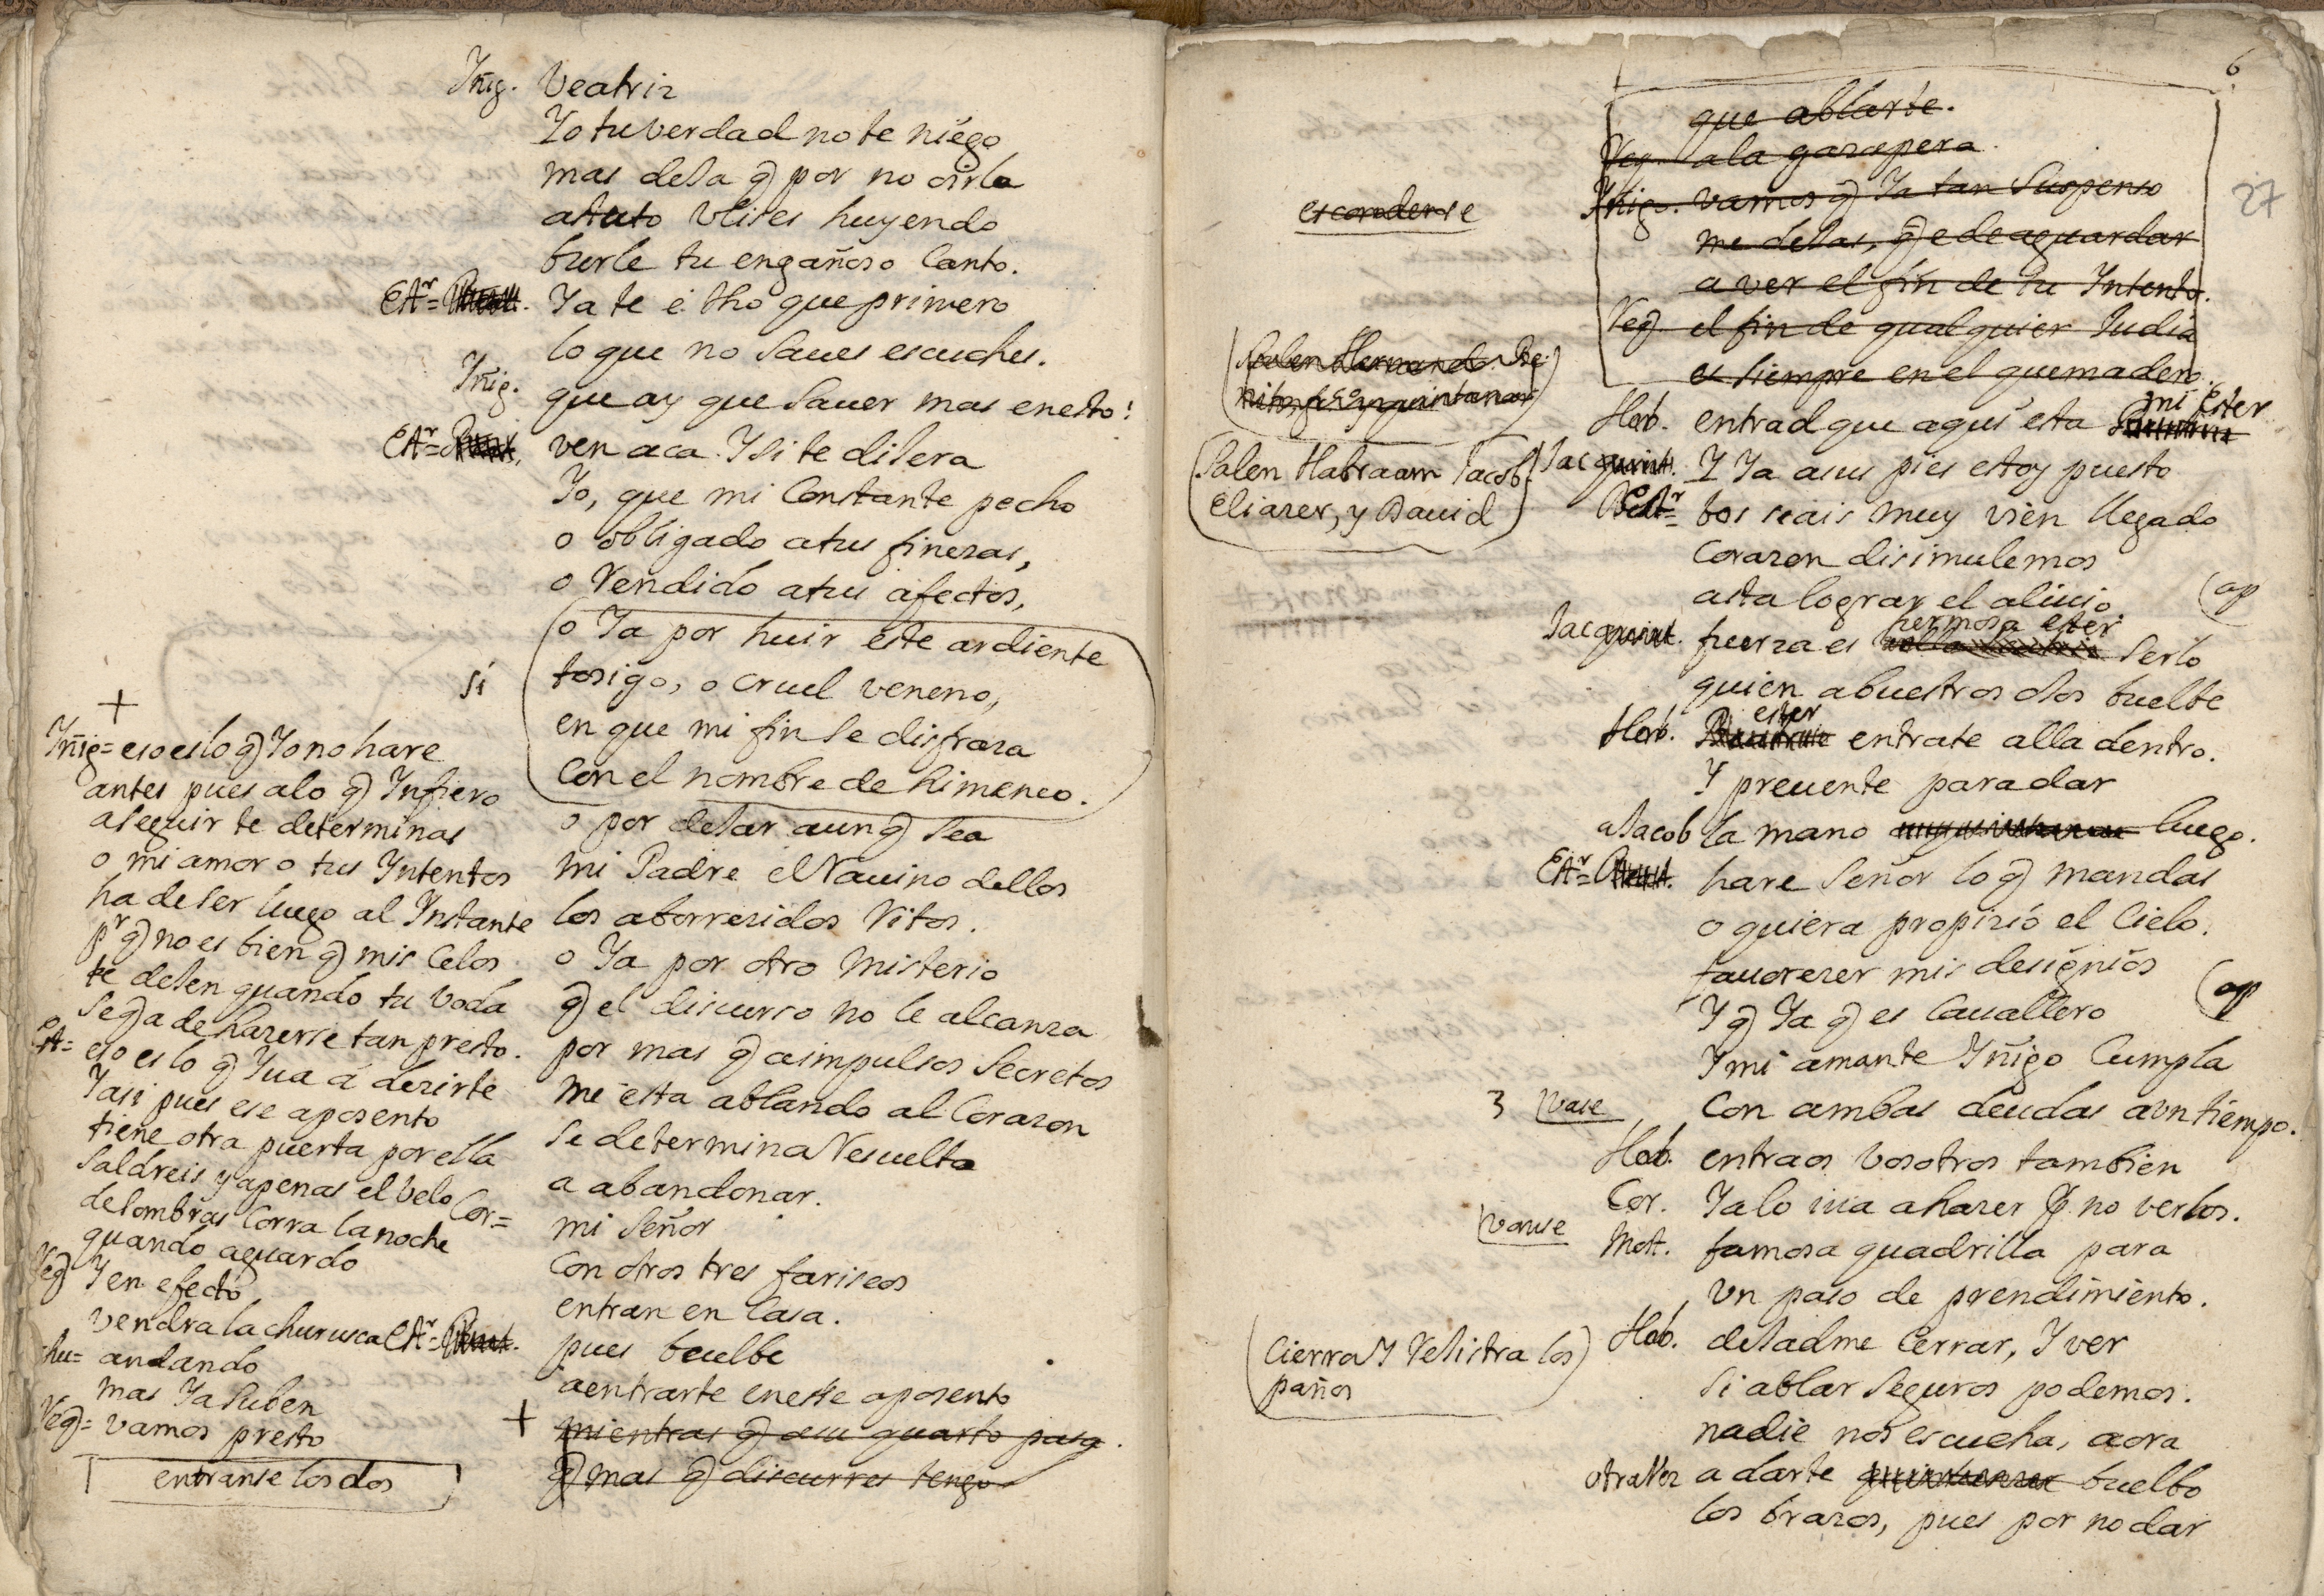 Yñig. Veatriz
Yo tu verdad no te niego
mas deja q̃ por no oirla
astuto Vlises huyendo
burle tu engañoso Canto.
Estr= Ya te é dho que primero
lo que no Saues escuches.
Yñig. que ay que Sauer mas en esto!
Estr= ven aca. Y si te dijera
Yo, que mi Constante pecho
o obligado a tus finezas,
o Rendido a tus afectos,
o Ya por huir este ardiente
si tosigo, o cruel veneno,
en que mi fin se disfraza
Con el nombre de himeneo.
o por dejar aunq̃ sea
mi Padre el Rauino dellos
los aborrezidos Ritos.
o Ya por otro Misterio
q̃ el discurso no le alcanza
por mas q̃ a impulsos Secretos
me esta ablando al Corazon
se determina Resuelta
a abandonar.
Cor= mi Señor
Con otros tres fariseos
entran en Casa.
Estr= pues buelbe
a entrarte en esse aposento
+ mientras q̃ a su quarto pasa.
q̃ mas q̃ discurres tengo
+
Yñig= eso es lo q̃ Yo no hare
antes pues a lo q̃ Ynfiero
a seguir te determinas
o mi amor o tus Yntentos
ha de ser luego al Ynstante
pr q̃ no es bien q̃ mis Celos
te dejen quando tu boda
se q̃ a de hazerse tan presto.
Est= eso es lo q̃ Yua a dezirte
Y asi pues ese aposento
tiene otra puerta por ella
Saldreis y apenas el velo
de sombras Corra la noche
quando aguardo
Veg Y en efecto
vendra la churusca
chu= andando
mas Ya Suben
Veg= vamos presto
entranse los dos
6
27
que ablarte.
Veg. a la gazapera.
esconderse
Yñig. vamos q̃ Ya tan Suspenso
me dejas, q̃ e de aguardar
a ver el fin de tu Yntento.
Veg el fin de qualquier Judia
es siempre en el quemadero.
(Salen Hernando. Be
nito, frco y quintanar)
Hab. entrad que aqui esta mi Ester
(Salen Habraam Jacob
Eliazer, y Dauid)
Jac Y Ya a sus pies estoy puesto
Estr= bos seais muy vien llegado
Corazon disimulemos
asta lograr el aliuio. (ap
Jac fuerza es hermosa ester Serlo
quien a buestros ojos buelbe
Hab. ester entrate alla dentro.
Y preuente para dar
a Jacob la mano luego.
Estr= hare Señor lo q̃ mandas
o quiera propizio el Cielo.
fauorezer mis designios
Y q̃ Ya q̃ es Cauallero (ap
Y mi amante Yñigo Cumpla
3 vase Con ambas deudas a vn tiempo.
Hab. entraos vosotros tambien
Cor. Ya lo iua a hazer Pr. no verlos.
vanse
Mot. famosa quadrilla para
vn paso de prendimiento.
Hab. dejadme Cerrar, Y ver
(Cierra Y Rejistra los)
paños
Si ablar Seguros podemos.
nadie nos escucha, aora
otra Vez a darte buelbo
los brazos, pues por no dar